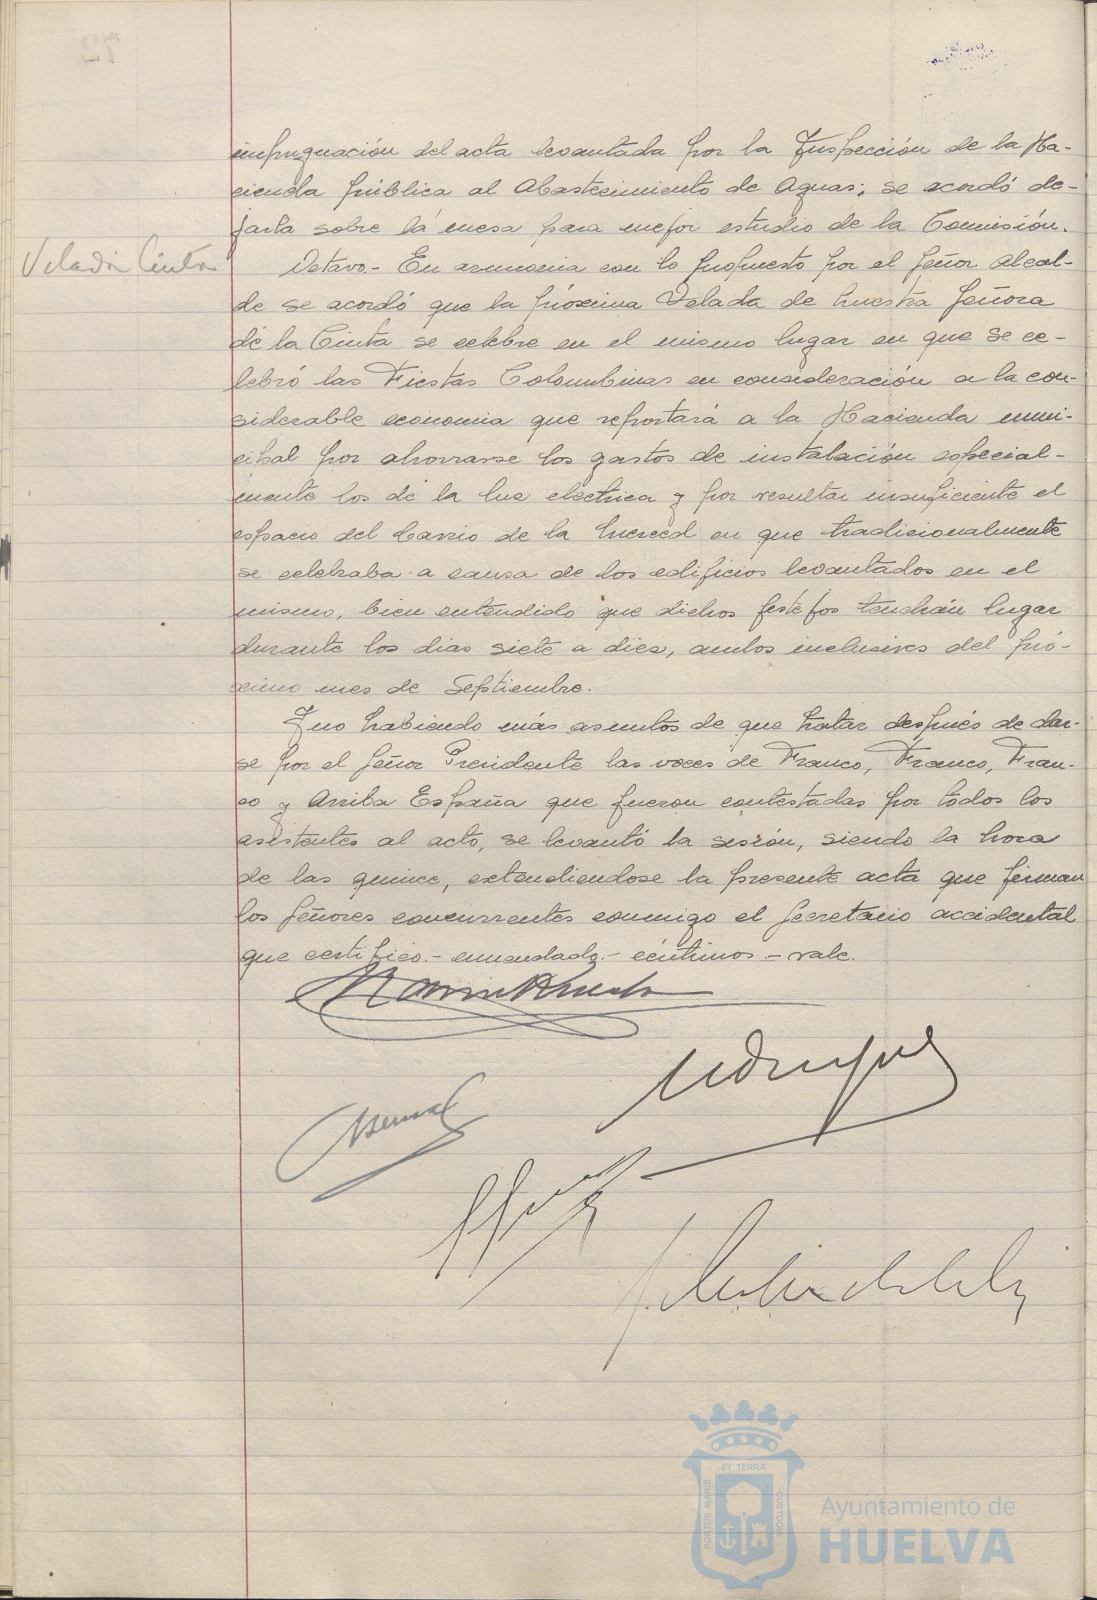 impugnación del acta levantada por la Inspección de la Ha-
cienda pública al Abastecimiento de Aguas; se acordó de-
jarla sobre la mesa para mejor estudio de la Comisión.
Velada Cinta
Octavo.- En armonia con lo propuesto por el Señor Alcal-
de se acordó que la próxima Velada de Nuestra Señora
de la Cinta se celebre en el mismo lugar en que se ce-
lebró las Fiestas Colombinas en consideración a la con-
siderable economia que reportará a la Hacienda muni-
cipal por ahorrarse los gastos de instalación especial-
mente los de la luz electrica y por resultar insuficiente el
espacio del barrio de la Merced en que tradicionalmente
se celebraba a causa de los edificios levantados en el
mismo, bien entendido que dichos festejos tendrán lugar
durante los dias siete a diez, ambos inclusives del pró-
ximo mes de Septiembre.
Y no habiendo más asuntos de que tratar después de dar-
se por el Señor Presidente las voces de Franco, Franco, Fran-
co y Arriba España que fueron contestadas por todos los
asistentes al acto, se levantó la sesión, siendo la hora
de las quince, extendiendose la presente acta que firman
los Señores concurrentes conmigo el Secretario accidental
que certifico.- enmendado.- céntimos - vale.
ET TERRÆ
PORTUS MARIS
CUSTODIA
Ayuntamiento de
HUELVA